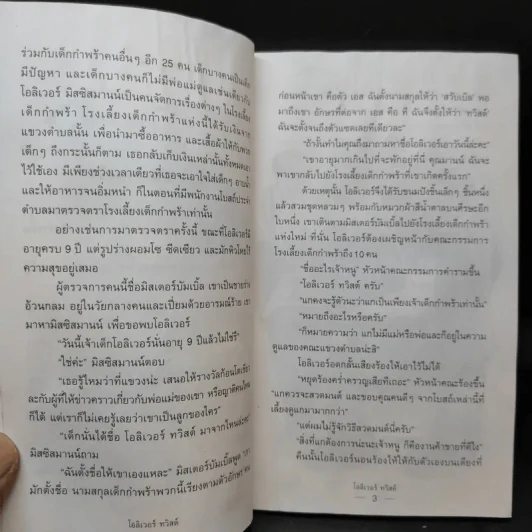 ร่วมกับเด็กกำพร้าคนอื่นๆ อีก 25 คน เด็กบางคนเป็นเด็ก
มีปัญหา และเด็กบางคนก็ไม่มีพ่อแม่ดูแลเช่นเดียวกับ
โอลิเวอร์ มิสซิสมานน์เป็นคนจัดการเรื่องต่างๆ ในโรงเลี้ยง
เด็กกำพร้า โรงเลี้ยงเด็กกำพร้าแห่งนี้ได้รับเงินจาก
แขวงตำบลนั้น เพื่อนำมาซื้ออาหาร และเสื้อผ้าให้กับพวก
เด็กๆ ถึงกระนั้นก็ตาม เธอกลับเก็บเงินเหล่านั้นทั้งหมดเอา
ไว้ใช้เอง มีเพียงช่วงเวลาเดียวที่เธอจะเอาใจใส่เด็กๆ อาบน้ำ
และให้อาหารจนอิ่มหนำ ก็ในตอนที่มีพนักงานโบสถ์ประจำ
ตำบลมาตรวจตราโรงเลี้ยงเด็กกำพร้าเท่านั้น
อย่างเช่นการมาตรวจตราครั้งนี้ ขณะที่โอลิเวอร์มี
อายุครบ 9 ปี แต่รูปร่างผอมโซ ซีดเซียว และมักหิวโหยไร้
ความสุขอยู่เสมอ
ผู้ตรวจการคนนี้ชื่อมิสเตอร์บัมเบิ้ล เขาเป็นชายร่าง
อ้วนกลม อยู่ในวัยกลางคนและเปี่ยมด้วยอารมณ์ร้าย เขา
มาหามิสซิสมานน์ เพื่อขอพบโอลิเวอร์
"วันนี้เจ้าเด็กโอลิเวอร์นั่นอายุ 9 ปีแล้วไม่ใช่รึ"
"ใช่ค่ะ" มิสซิสมานน์ตอบ
"เธอรู้ไหมว่าที่แขวงน่ะ เสนอให้รางวัลก้อนโตเชียว
ละกับผู้ที่ให้ข่าวคราวเกี่ยวกับพ่อแม่ของเขา หรือญาติคนไหน
ก็ได้ แต่เราก็ไม่เคยรู้เลยว่าเขาเป็นลูกของใคร"
"เด็กนั่นได้ชื่อ โอลิเวอร์ ทวิสต์ มาจากไหนล่ะคะ"
มิสซิสมานน์ถาม
"ฉันตั้งชื่อให้เขาเองแหละ" มิสเตอร์บัมเบิ้ลพูด
มักตั้งชื่อ นามสกุลเด็กกำพร้าพวกนี้เรียงตามตัวอักษร
โอลิเวอร์ ทวิสต์
ก่อนหน้าเขา คือตัว เอส ฉันตั้งนามสกุลให้ว่า 'สวับเบิล' พอ
มาถึงเขา อักษรที่ต่อจาก เอส คือ ที ฉันจึงตั้งให้ว่า 'ทวิสต์'
ฉันจะตั้งจนถึงตัวแซดเลยทีเดียวละ"
"ถ้างั้นทำไมคุณถึงมาถามหาชื่อโอลิเวอร์เอาวันนี้ล่ะคะ"
"เขาอายุมากเกินไปที่จะพักอยู่ที่นี่ คุณมานน์ ฉันจะ
พาเขากลับไปยังโรงเลี้ยงเด็กกำพร้าที่เขาเกิดครั้งแรก"
ด้วยเหตุนั้น โอลิเวอร์จึงได้รับขนมปังชิ้นเล็กๆ ชิ้นหนึ่ง
แล้วสวมชุดหลวมๆ พร้อมกับหมวกผ้าสีน้ำตาลบนศีรษะอีก
ใบหนึ่ง เขาเดินตามมิสเตอร์บัมเบิ้ลไปยังโรงเลี้ยงเด็กกำพร้า
แห่งใหม่ ที่นั่น โอลิเวอร์ต้องเผชิญหน้ากับคณะกรรมการ
โรงเลี้ยงเด็กกำพร้าถึง 10 คน
"ชื่ออะไรเจ้าหนู" หัวหน้าคณะกรรมการคำรามขึ้น
"โอลิเวอร์ ทวิสต์ ครับ"
"แกคงจะรู้ตัวนะว่าแกเป็นเพียงเจ้าเด็กกำพร้าเท่านั้น"
"หมายถึงอะไรหรือครับ"
"ก็หมายความว่า แกไม่มีแม่หรือพ่อและก็อยู่ในความ
ดูแลของคณะแขวงตำบลน่ะสิ"
โอลิเวอร์อดกลั้นเสียงร้องไห้เอาไว้ไม่ได้
"หยุดร้องคร่ำครวญเสียทีเถอะ" หัวหน้าคณะร้องขึ้น
"แกควรจะสวดมนต์ และขอบคุณคนดีๆ จากโบสถ์เหล่านี้ที่
เลี้ยงดูแกมามากกว่า"
"แต่ผมไม่รู้จักวิธีสวดมนต์นี่ครับ"
"สิ่งที่แกต้องการน่ะนะเจ้าหนู ก็คืองานค้าขายที่ดีไง"
คืนนั้นโอลิเวอร์นอนร้องไห้ให้กับตัวเองบนเตียงที่
โอลิเวอร์ ทวิสต์
3